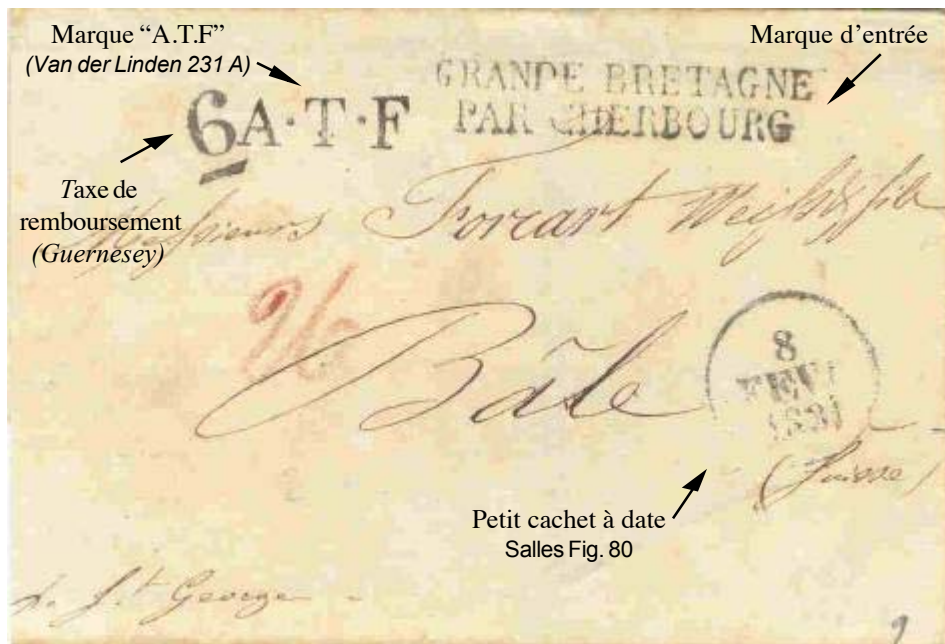 Marque “A.T.F”
(Van der Linden 231 A)
Marque d’entrée
GRANDE BRETAGNE
PAR CHERBOURG
6 A·T·F
Taxe de
remboursement
(Guernesey)
Messieurs Forcart
Bâle
8
FEV
1831
(Suisse)
Petit cachet à date
Salles Fig. 80
St George
9